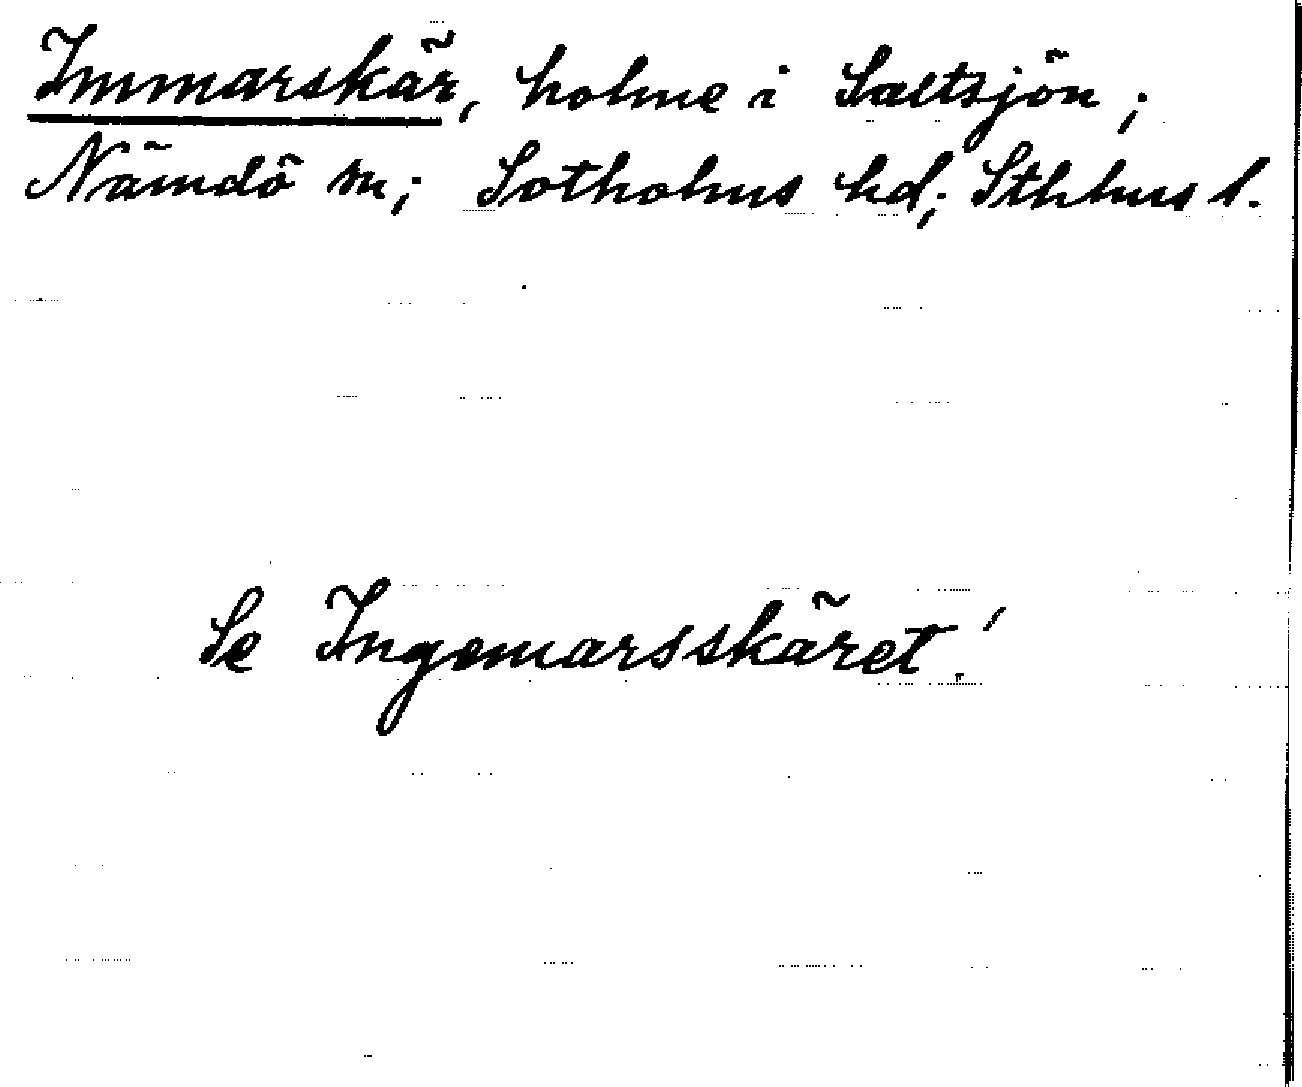 Immarskär, holme i Saltsjön;
Nämdö sn; Sotholms hd; Sthlms l.
Se Ingemarsskäret!